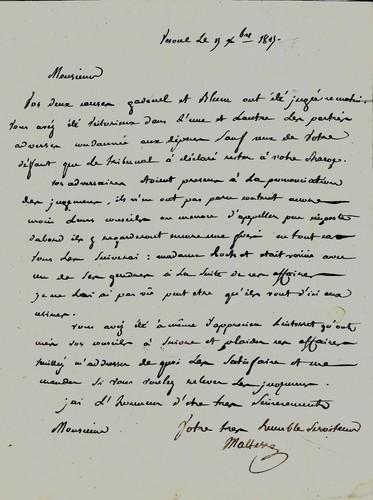 Vesoul Le 15 Xbre 1815.
Monsieur
Vos deux causes gadenel et Blum ont été jugée ce matin
vous avés été victorieux dans l'une et L'autre Les parties
adverses condamné aux dépens Sauf ceux de votre
défaut que Le tribunal à déclaré rester à votre charge.
vos adversaires étoient présens à La prononciation
des jugemens, ils n'en ont pas paru content
mais Leurs conseils en d'appeller peu importe
dabord ils y regarderont encore une fois en tout cas
vous Les Suiverai : madame était venue avec
un de Ses gendres à La Suite de ces affaires
je ne Lai ai pas vüe peut etre qu'ils vont d'ici
vous avés été à même d'apprecier L'interest qu'ont
mis vos conseils à Suivre et plaider ces affaires
veuillez m'adresser de quoi Les Satisfaire et me
mander Si vous voulez relever Les jugemens.
jai L'honneur d'etre tres Sincerement
Monsieur Votre tres humble Serviteur